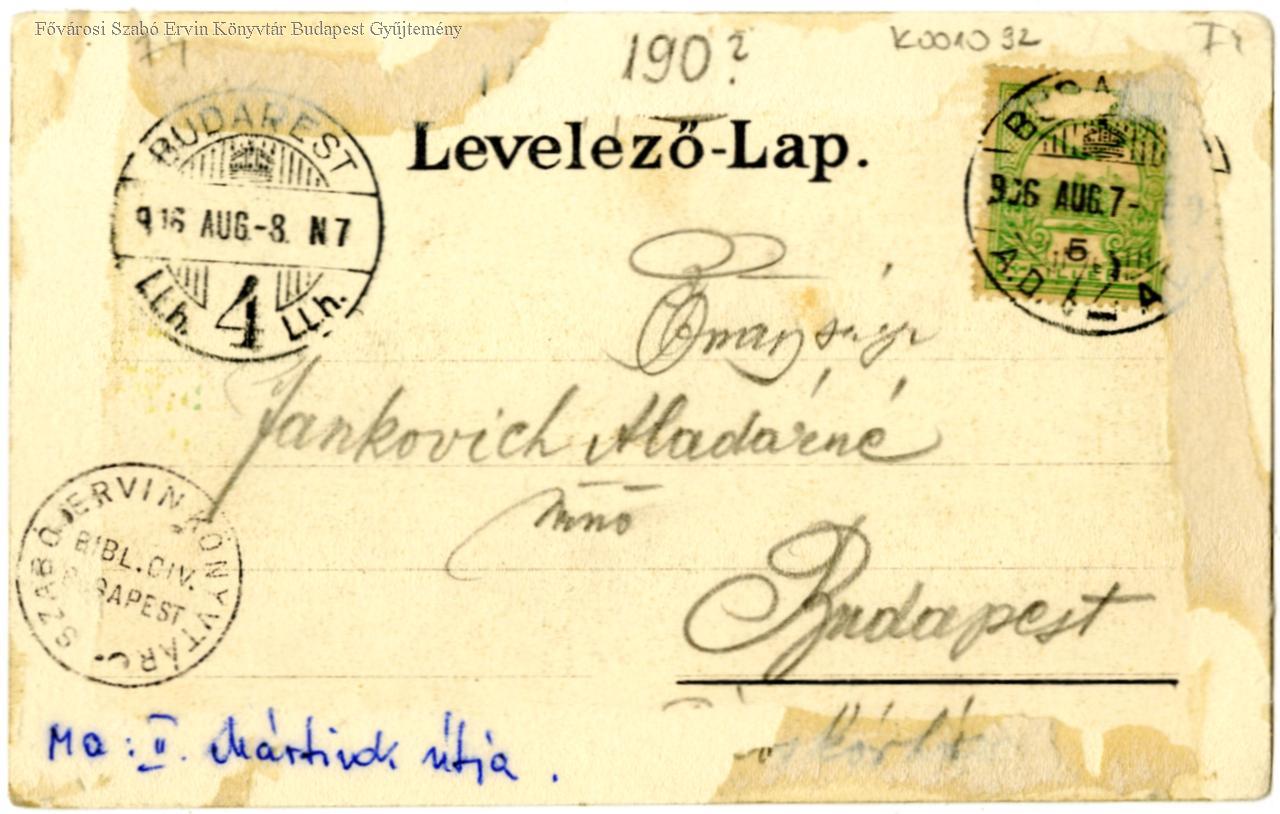 Fővárosi Szabó Ervin Könyvtár Budapest Gyűjtemény
190?
K001092
Levelező-Lap.
BUDAPEST
916 AUG.-8. N7
4
I.I.h. I.I.h.
906 AUG.7-
5
Jankovich Aladárné
Budapest
SZABÓ ERVIN KÖNYVTÁR
BIBL. CIV.
BUDAPEST
Ma: II. Mártírok útja.